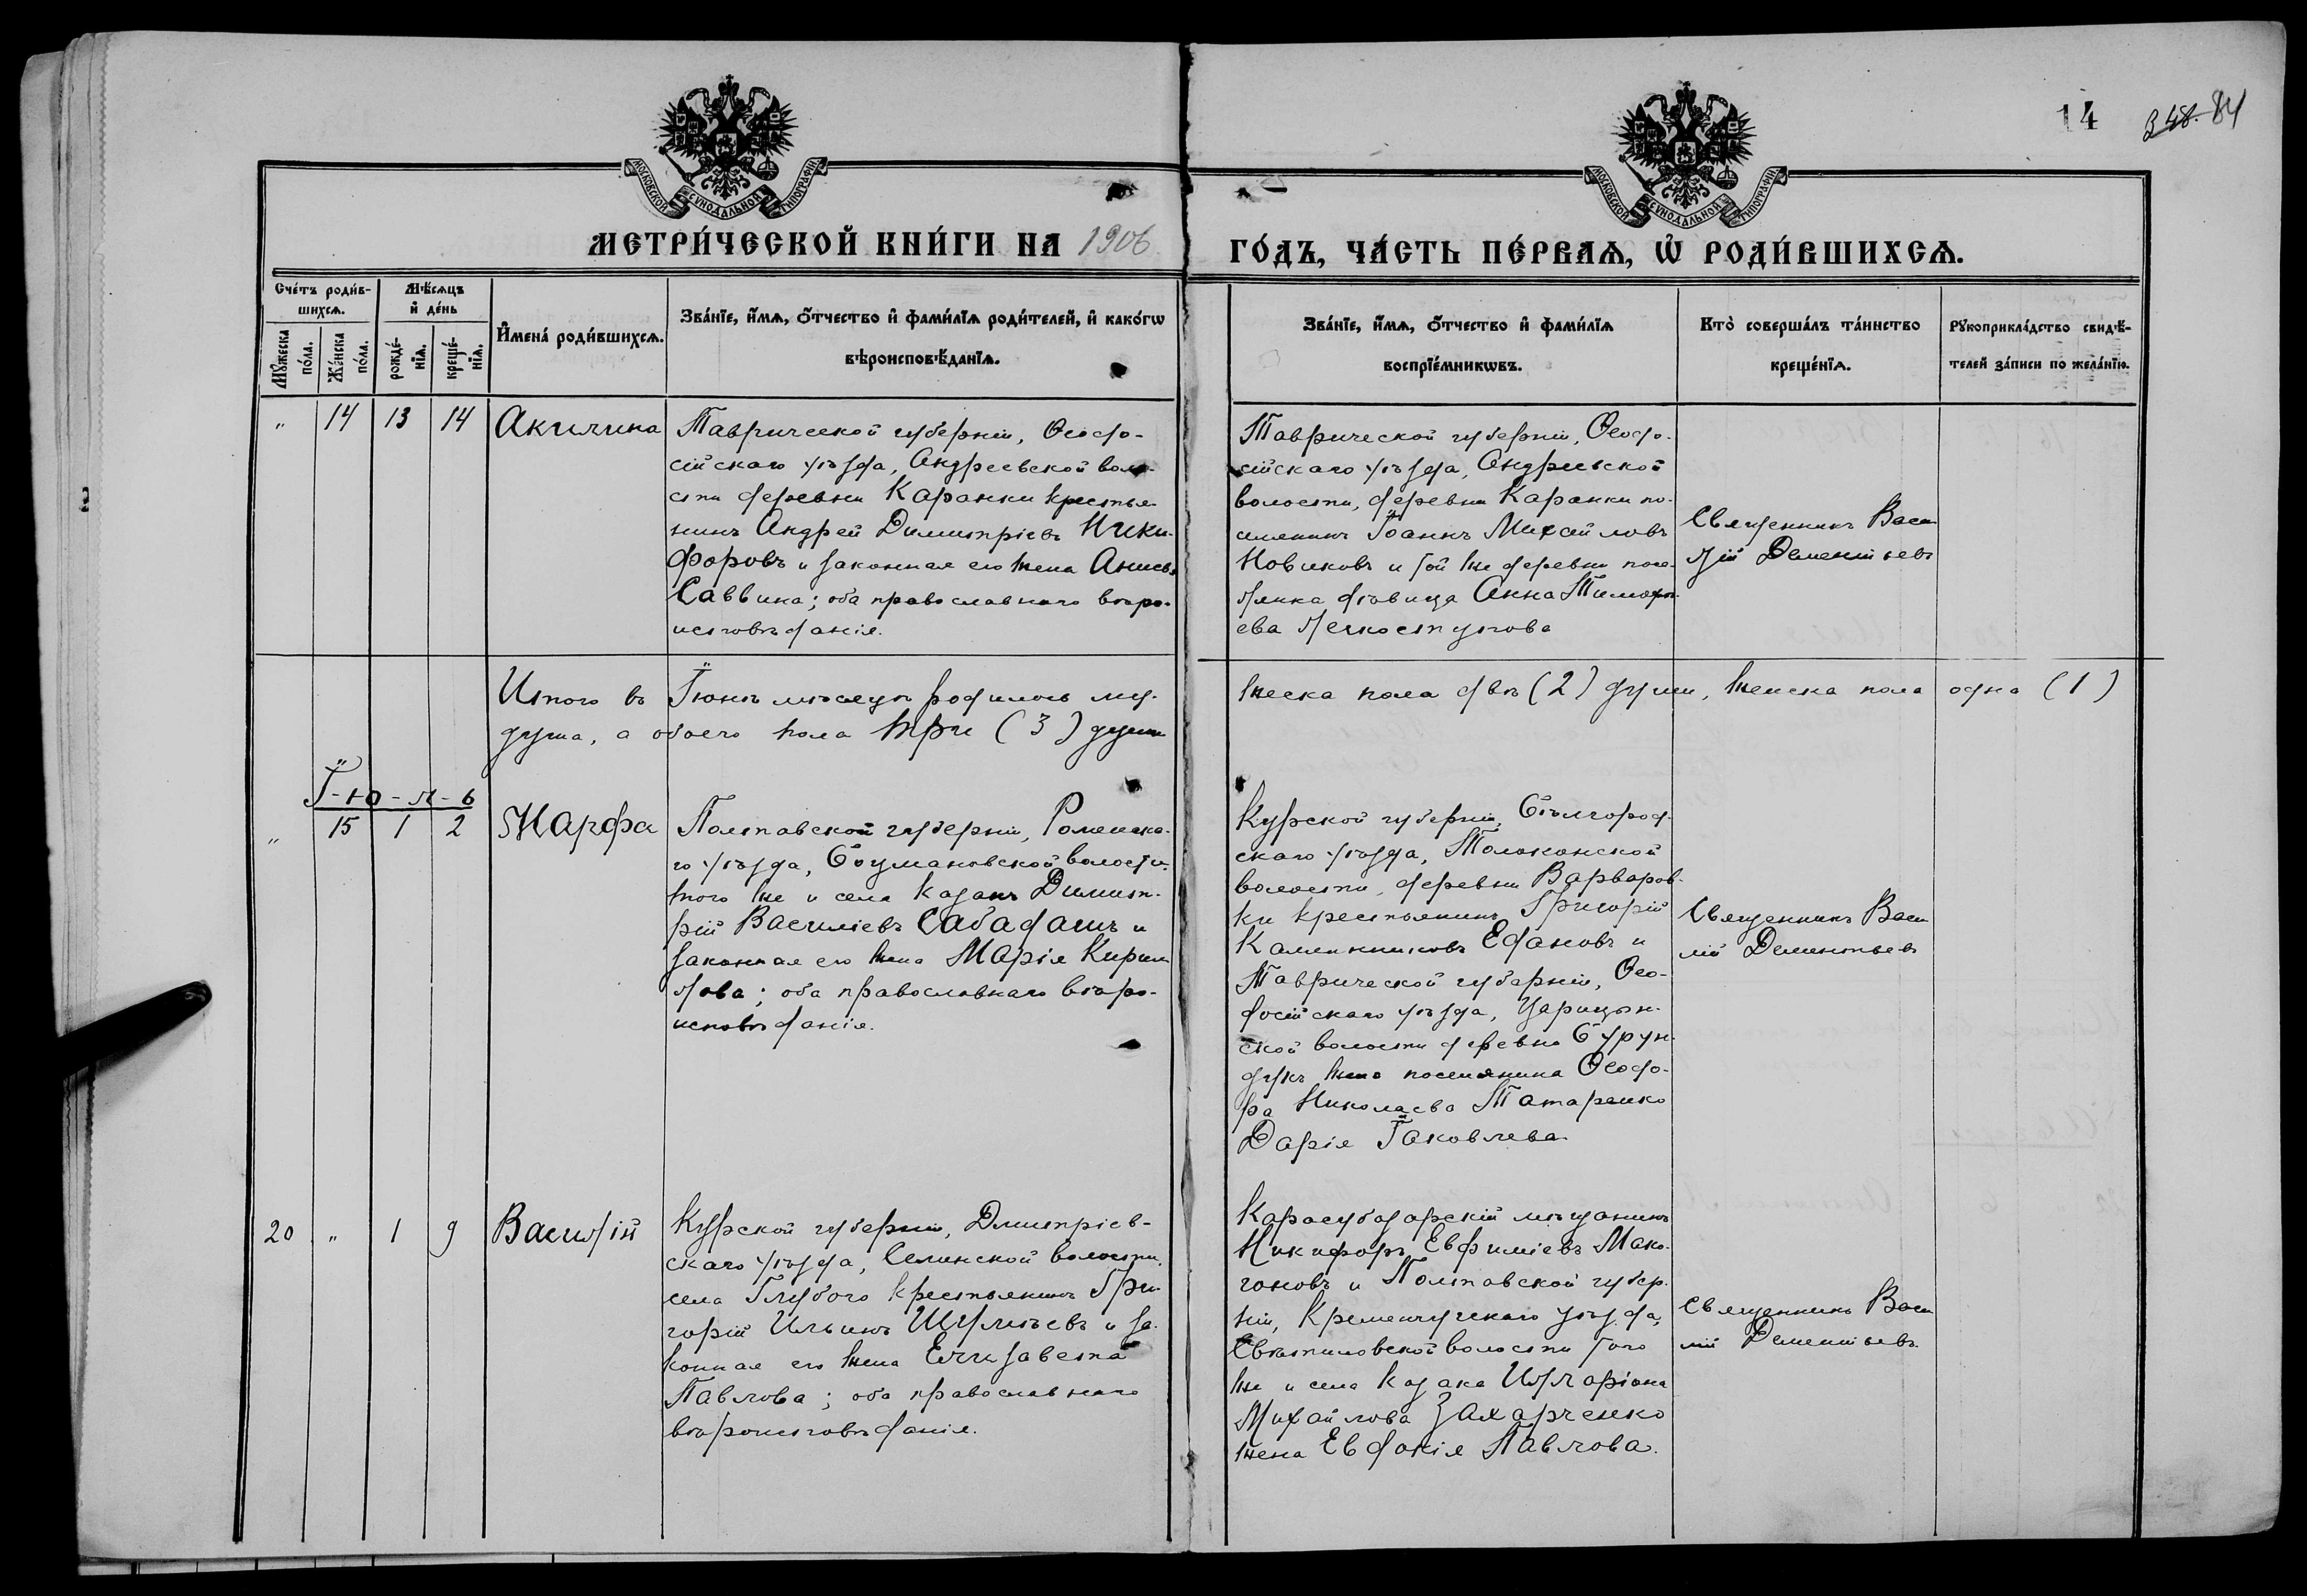 14 348. 84
МОСКОВСКОЙ СУНОДАЛЬНОЙ ТИПОГРАФІИ
МОСКОВСКОЙ СУНОДАЛЬНОЙ ТИПОГРАФІИ
МЕТРИ́ЧЕСКОЙ КНИ́ГИ НА 1906 ГО́ДЪ, ЧА́СТЬ ПЕ́РВАѦ, Ѡ҆ РОДИ́ВШИХСѦ.
Сче́тъ роди́в-
шихсѧ.
Мꙋ́жеска
по́ла.
Же́нска
по́ла.
Мѣ́сѧцъ
и҆ де́нь
рожде́-
нїѧ.
креще́-
нїѧ.
И҆мена̀ роди́вшихсѧ.
Зва́нїе, и҆́мѧ, ѻ҆́тчество и҆ фами́лїѧ роди́телей, и҆ како́гѡ
вѣроисповѣ́данїѧ.
Зва́нїе, и҆́мѧ, ѻ҆́тчество и҆ фами́лїѧ
воспрїе́мникѡвъ.
Кто̀ соверша́лъ та́инство
креще́нїѧ.
Рꙋкоприкла́дство свидѣ́-
телей за́писи по жела́нїю.
" 14 13 14 Акилина
Таврической губерніи, Ѳеодо-
сійскаго уѣзда, Андреевской воло-
сти деревни Каранки крестья
нинъ Андрей Димитріевъ Ники-
форовъ и законная его жена Анисья
Саввина; оба православнаго вѣро-
исповѣданія.
Таврической губерніи, Ѳеодо-
сійскаго уѣзда, Андреевской
волости, деревни Каранки по-
селянинъ Іоаннъ Михайловъ
Новиковъ и той же деревни посе-
лянка дѣвица Анна Тимофе-
ева Легкоступова
Священникъ Васи
лій Дементьевъ
Итого въ Іюнѣ мѣсяцѣ родилось му- жеска пола двѣ (2) души, женска пола одна (1)
душа, а обоего пола три (3) души
І-ю-л-ь
" 15 1 2 Марфа
Полтавской губерніи, Роменска-
го уѣзда, волости
того же и села казакъ Димит-
рій Василіевъ Сабадашъ и
законная его жена Марія Кирил
лова; оба православнаго вѣро-
исповѣданія.
Курской губерніи, Бѣлгород-
скаго уѣзда, Толоконской
волости, деревни Варваров-
ки крестьянинъ Григорій
Каллинниковъ Ефановъ и
Таврической губерніи, Ѳео-
досійскаго уѣзда, Царицын-
ской волости деревни Бурун-
дукъ жена поселянина Ѳеодо-
ра Николаева Татаренко
Дарія Іаковлева
Священникъ Васи
лій Дементьевъ
20 " 1 9 Василій
Курской губерніи, Дмитріев-
скаго уѣзда, Селинской волости,
села Глубого крестьянинъ Гри
горій Ильинъ Шумѣевъ и за-
конная его жена Елисавета
Павлова; оба православнаго
вѣроисповѣданія.
Карасубазарскій мѣщанинъ
Никифоръ Евфиміевъ Мако-
гоновъ и Полтавской губер-
ніи, Кременчугскаго уѣзда,
волости того
же и села казака Илларіона
Михайлова Захарченко
жена Евдокія Павлова.
Священникъ Васи
лій Дементьевъ.